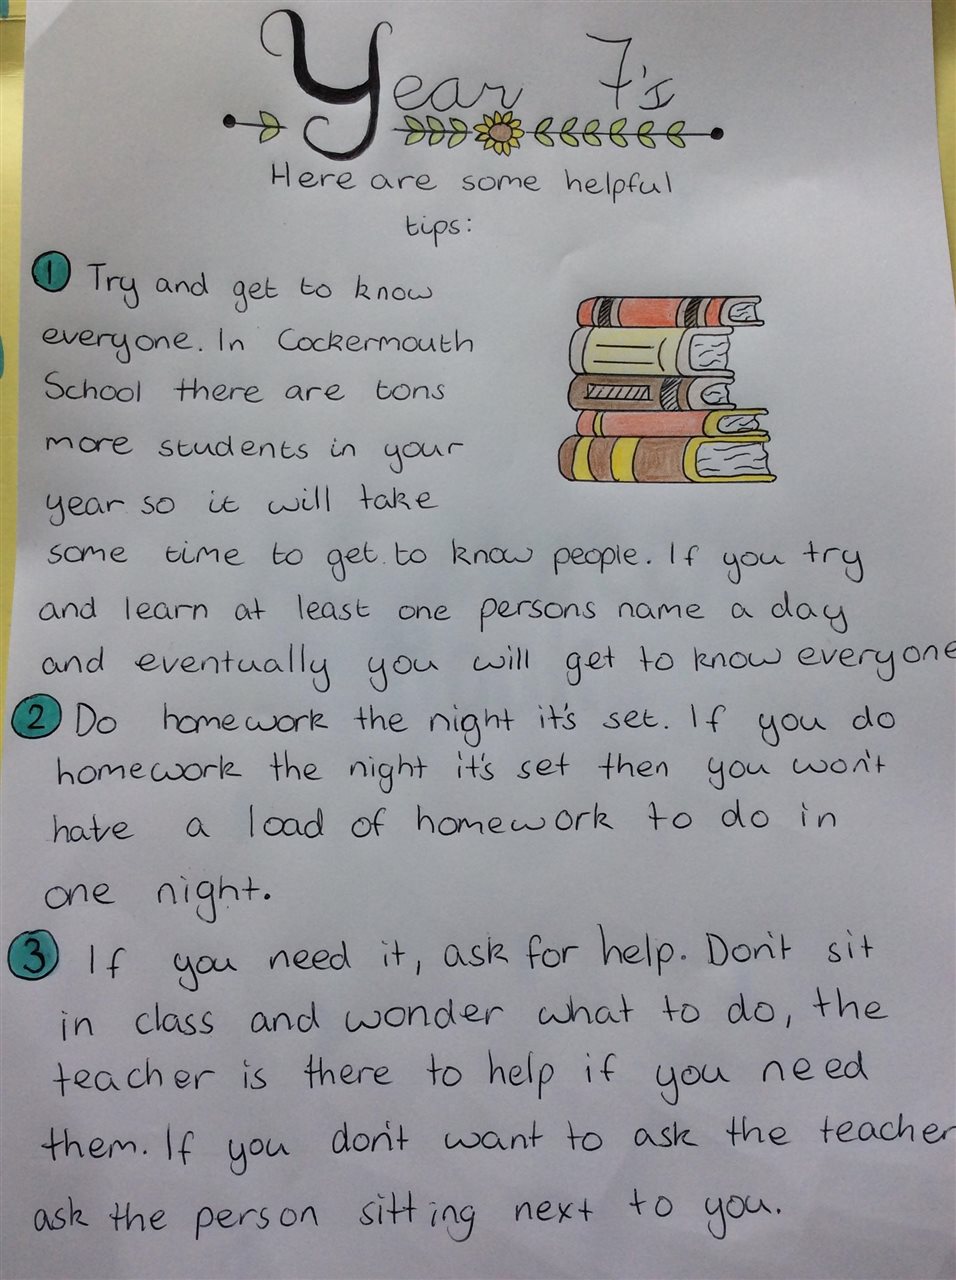 Year 7's
Here are some helpful
tips:
1 Try and get to know
everyone. In Cockermouth
School there are tons
more students in your
year so it will take
some time to get to know people. If you try
and learn at least one persons name a day
and eventually you will get to know everyone
2 Do homework the night it's set. If you do
homework the night it's set then you won't
have a load of homework to do in
one night.
3 If you need it, ask for help. Don't sit
in class and wonder what to do, the
teacher is there to help if you need
them. If you don't want to ask the teacher
ask the person sitting next to you.